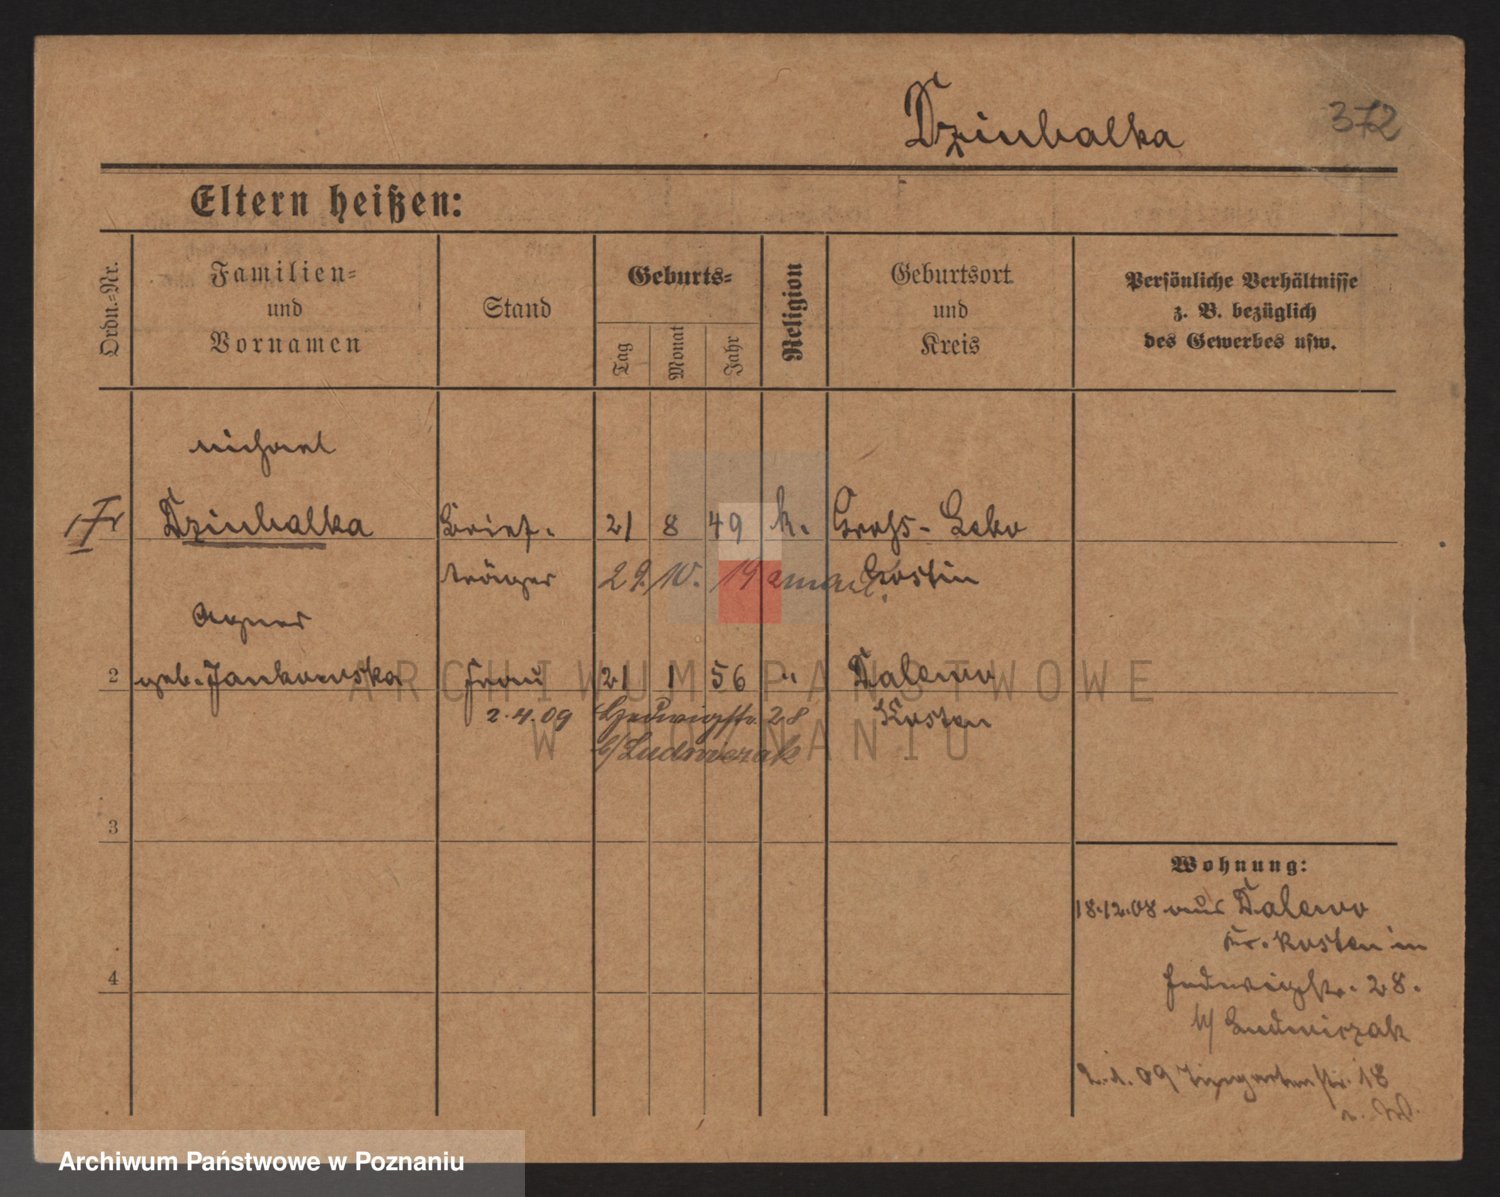 Dziubalka
372
Eltern heißen:
Ordn.-Nr.
Familien-
und
Vornamen
Stand
Geburts-
Tag
Monat
Jahr
Religion
Geburtsort
und
Kreis
Persönliche Verhältnisse
z. B. bezüglich
des Gewerbes usw.
Michael
1 Dziubalka Brief- 21 8 49 k. Gross-Lebo
träger 29. 10. 19 Kostin
Agnes
2 geb. Jankowska Frau 21 1 56 " Dalewo
2.4.09 Hedwigstr. 28 Kosten
b/Ludwiczak
3
4
Wohnung:
18.12.08 aus Dalewo
Kr. Kosten in
Hedwigstr. 28.
b/ Ludwiczak
2.1.09 Tiergartenstr. 18
ARCHIWUM PAŃSTWOWE
W POZNANIU
Archiwum Państwowe w Poznaniu